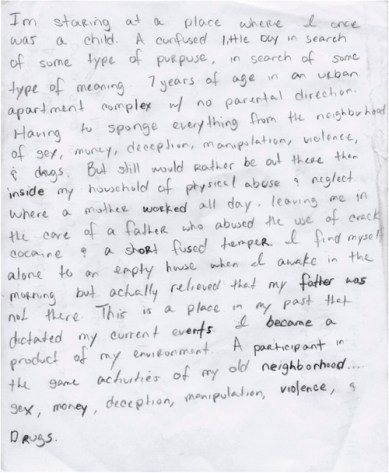 Im staring at a place where I once
was a child. A confused little boy in search
of some type of purpose, in search of some
type of meaning 7 years of age in an urban
apartment complex w/ no parental direction.
Having to sponge everything from the neighborhood
of sex, money, deception, manipulation, violence,
& drugs. But still would rather be out there then
inside my household of physical abuse & neglect
where a mother worked all day. leaving me in
the care of a father who abused the use of crack
cocaine & a short fused temper. I find myself
alone to an empty house when I awake in the
morning but actually relieved that my father was
not there This is a place in my past that
dictated my current events I became a
product of my environment. A participant in
the same activities of my old neighborhood....
sex, money, deception, manipulation, violence, &
Drugs.